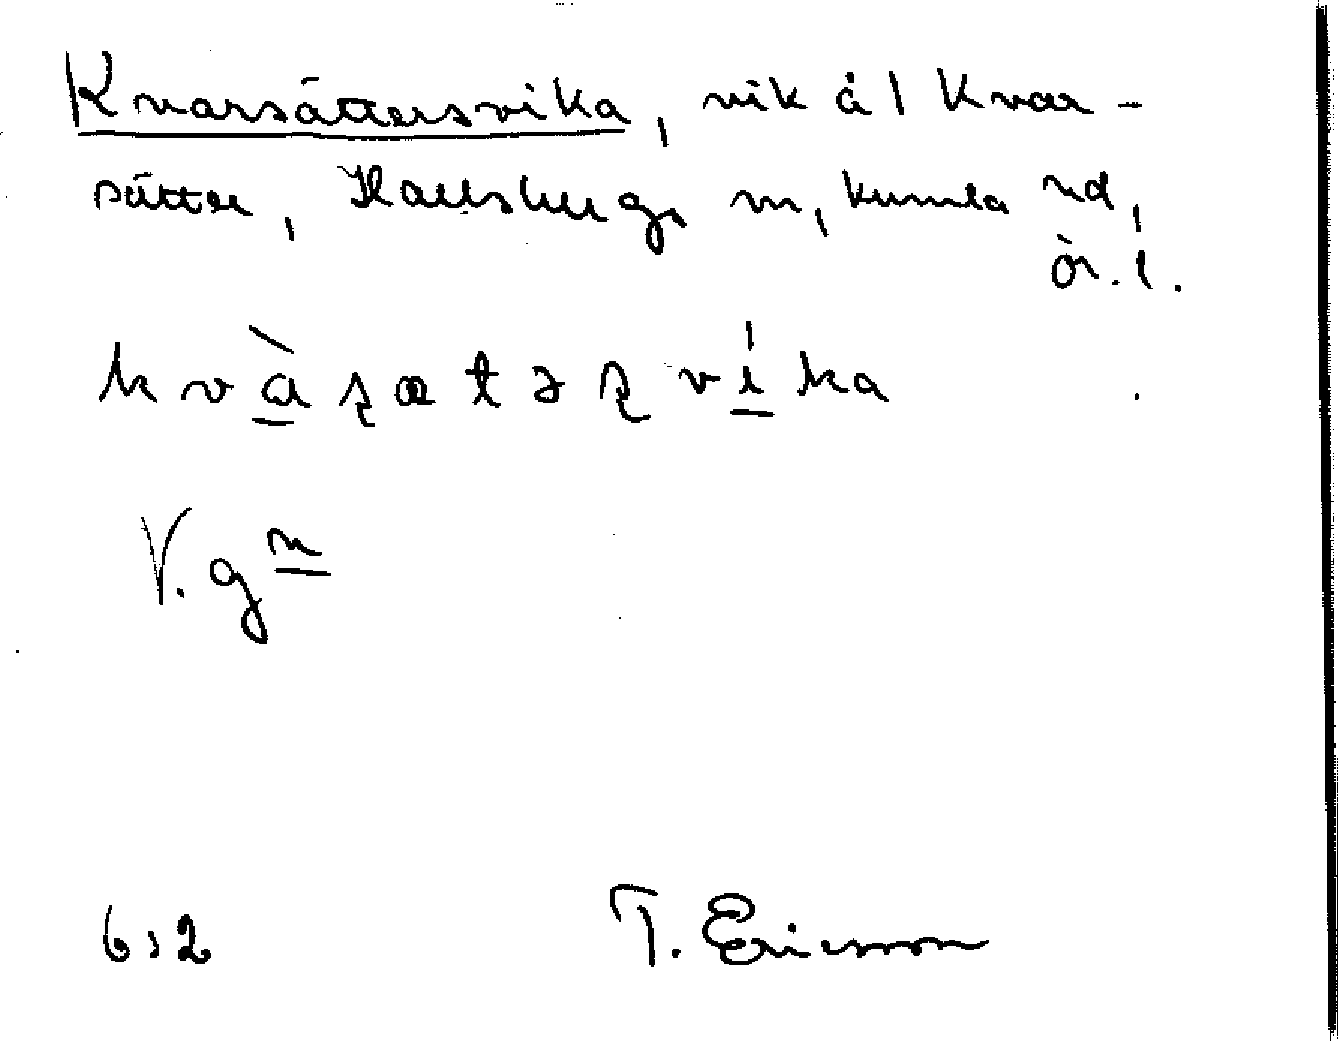 Kvarsättersvika, vik å l Kvar-
sätter, Hallsbergs sn, Kumla hd,
ör. l.
kvàʂætəʂvíka
V. gⁿ
6:2
T. Ericsson